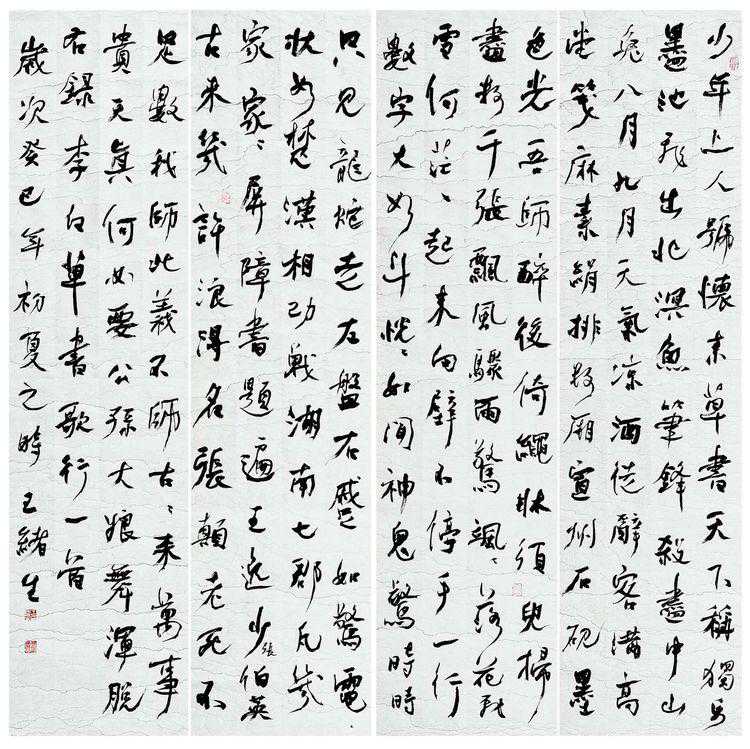 少年上人號懷素草書天下稱獨步
墨池飛出北溟魚筆鋒殺盡中山
兔八月九月天氣涼酒徒辭客滿高
堂箋麻素絹排數厢宣州石硯墨
色光吾師醉後倚繩牀須臾掃
盡數千張飄風驟雨驚颯々落花飛
雪何茫々起來向壁不停手一行
數字大如斗恍々如聞神鬼驚時時
只見龍蛇走左盤右蹙如驚電
狀如楚漢相攻戰湖南七郡凡幾
家家々屏障書題遍王逸少張伯英
古來幾許浪得名張顛老死不
足數我師此義不師古々來萬事
貴天眞何必要公孫大娘舞渾脫
右錄李白草書歌行一首
歲次癸巳年初夏之時王緒生